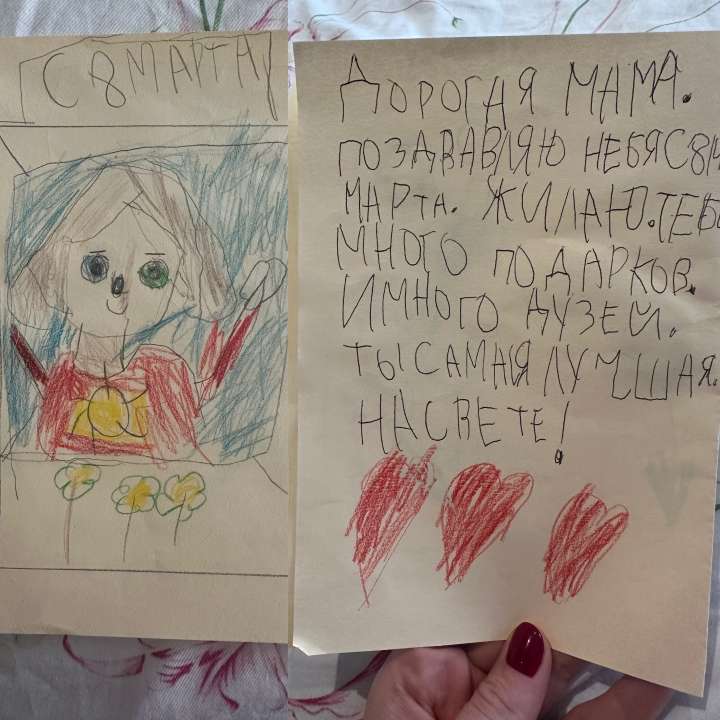 С 8 МАРТА
ДОРОГАЯ МАМА.
ПОЗДАВАВЛЯЮ НЕБЯ С 8
МАРТА. ЖИЛАЮ. ТЕБЕ
МНОГО ПОДАРКОВ.
ИМНОГО ДУЗЕЙ.
ТЫ САМАЯ ЛУЧШАЯ.
НАСВЕТЕ!